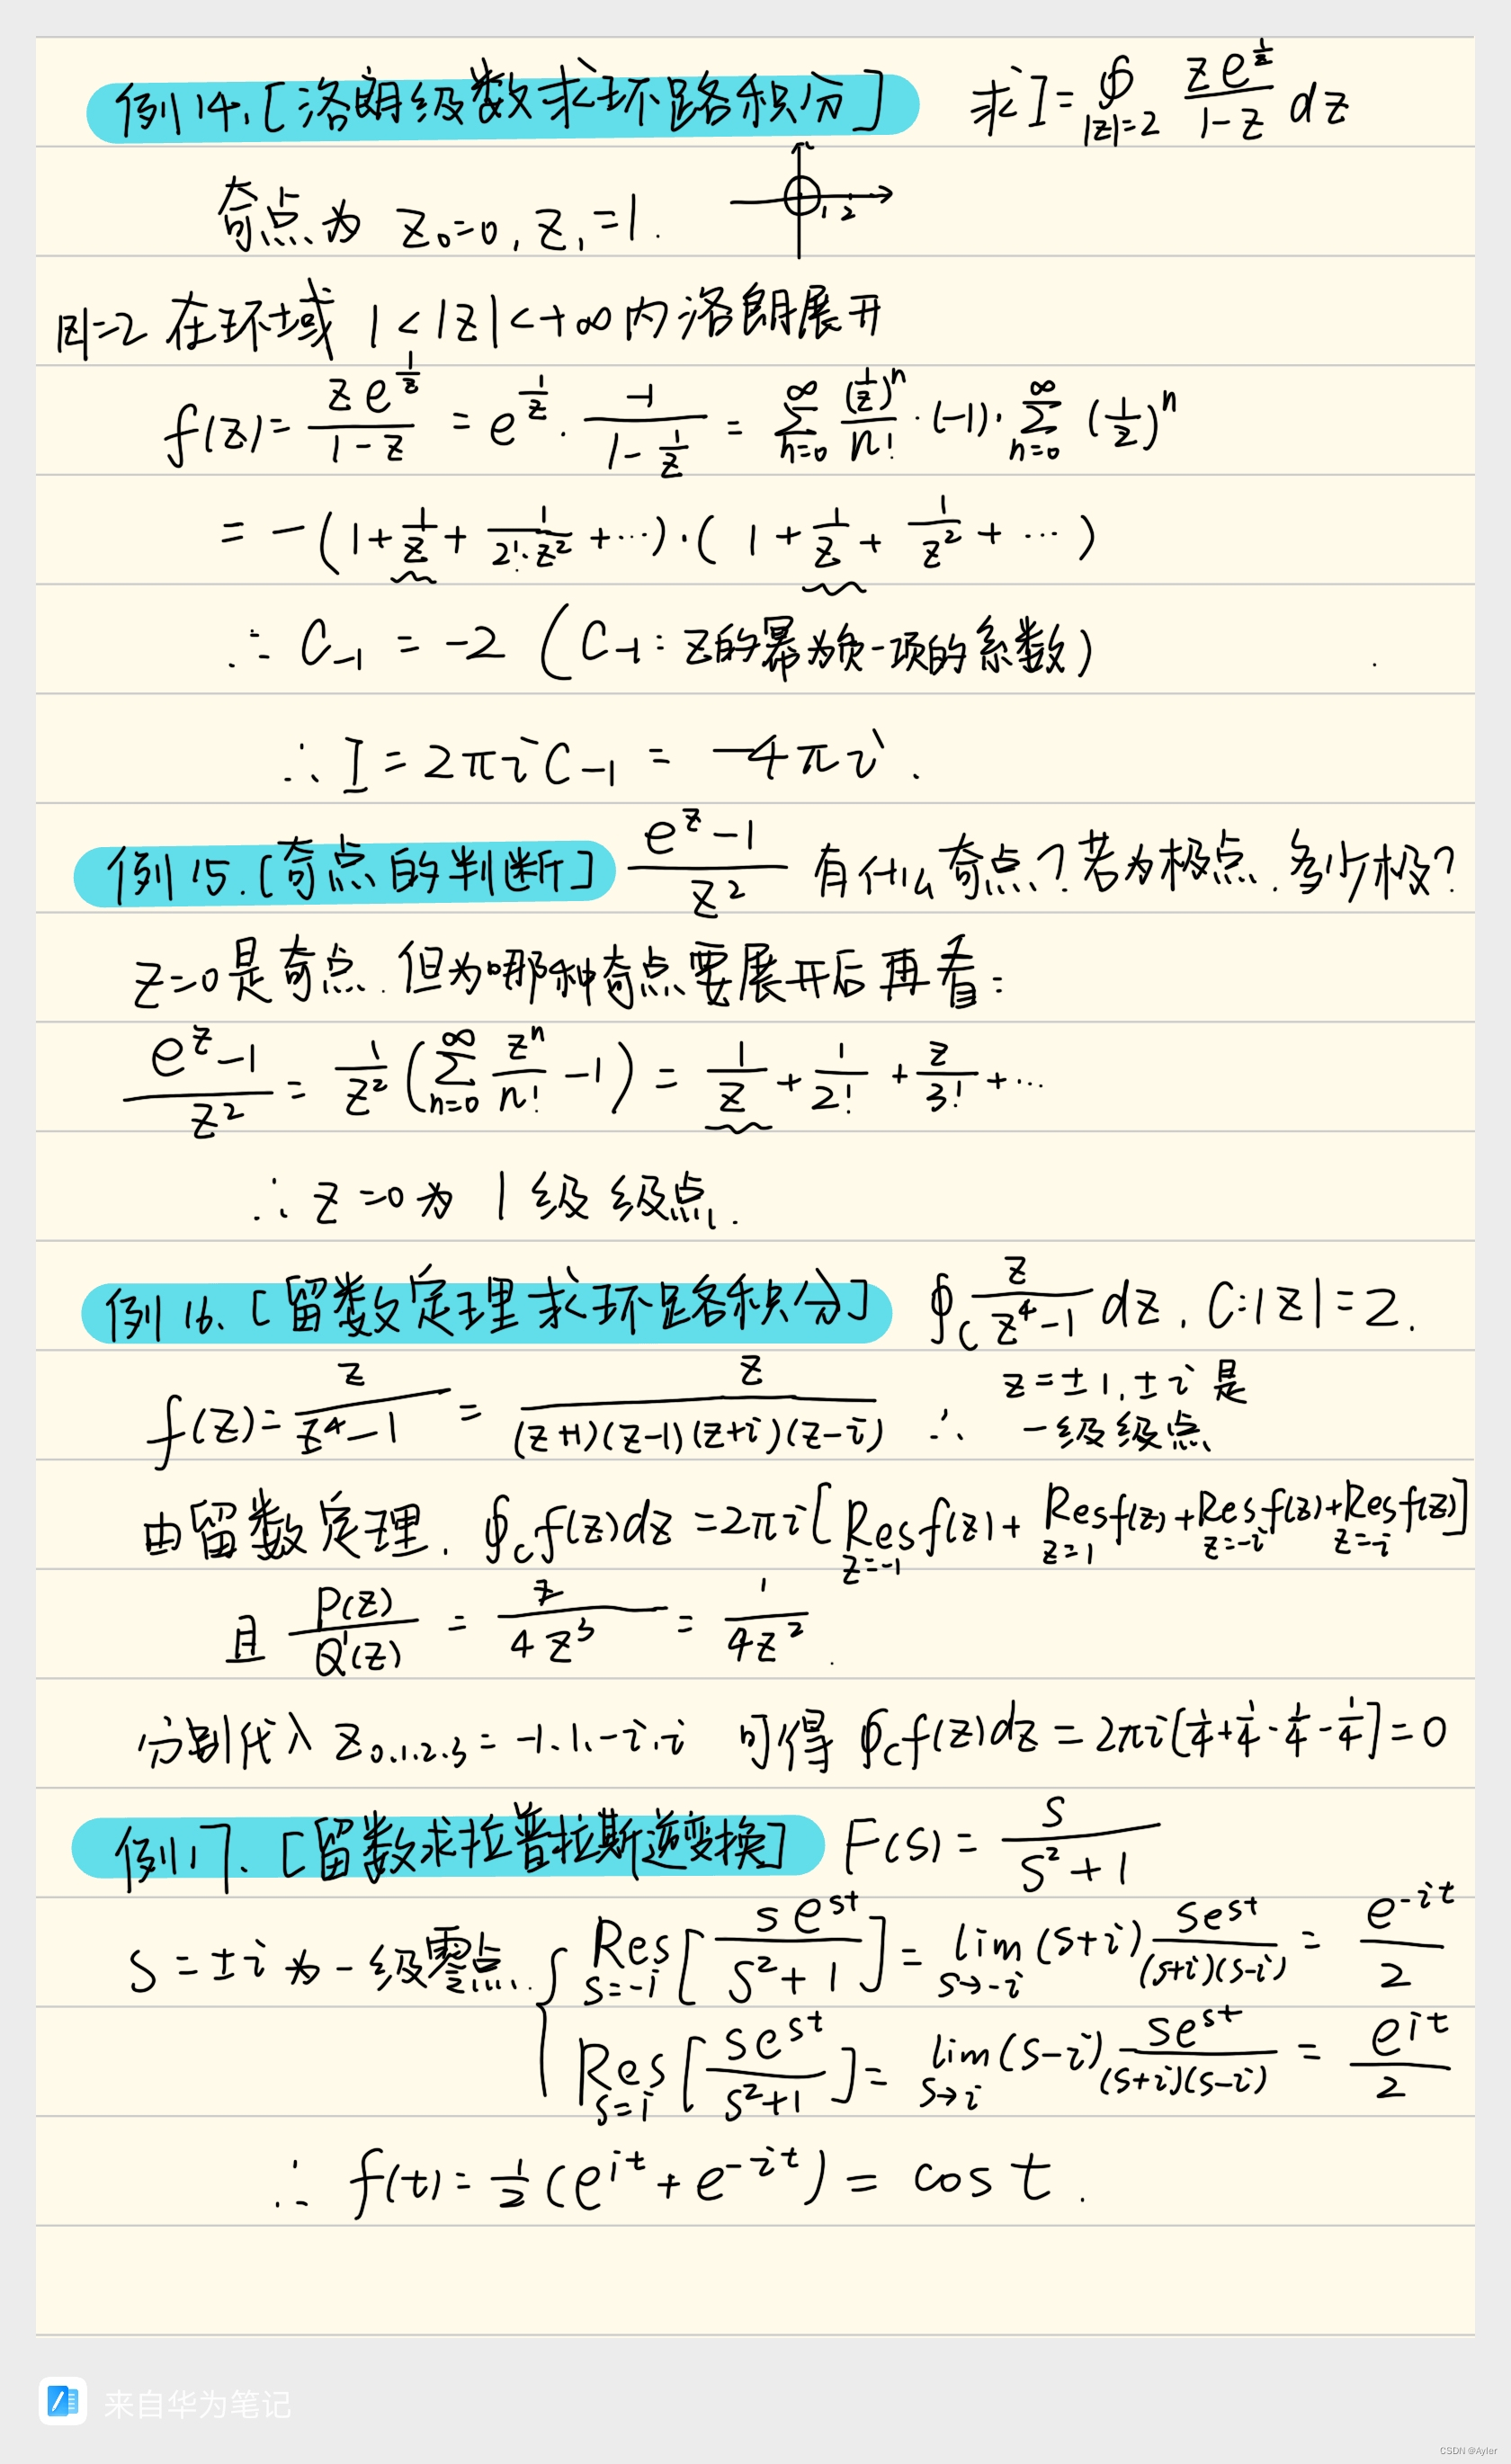 例14.[洛朗级数求环路积分] 求I=∮_{|z|=2} \frac{ze^{\frac{1}{z}}}{1-z} dz
奇点为 z₀=0, z₁=1.
1 2
|z|=2 在环域 1<|z|<+∞内洛朗展开
f(z)=\frac{ze^{\frac{1}{z}}}{1-z} = e^{\frac{1}{z}}·\frac{-1}{1-\frac{1}{z}} = \sum_{n=0}^{∞} \frac{(\frac{1}{z})^n}{n!}·(-1)·\sum_{n=0}^{∞} (\frac{1}{z})^n
= -(1+\frac{1}{z}+\frac{1}{2!·z²}+…)·(1+\frac{1}{z}+\frac{1}{z²}+…)
∴ C₋₁ = -2 (C₋₁: z的幂为负一项的系数)
∴ I = 2πi C₋₁ = -4πi.
例15.[奇点的判断] \frac{e^z-1}{z²} 有什么奇点?若为极点.多少极?
z=0是奇点.但为哪种奇点要展开后再看:
\frac{e^z-1}{z²} = \frac{1}{z²}(\sum_{n=0}^{∞} \frac{z^n}{n!}-1) = \frac{1}{z}+\frac{1}{2!}+\frac{z}{3!}+…
∴ z=0为 1级级点.
例16.[留数定理求环路积分] ∮_C \frac{z}{z⁴-1} dz, C:|z|=2.
f(z)=\frac{z}{z⁴-1} = \frac{z}{(z+1)(z-1)(z+i)(z-i)} ∴ z=±1,±i是
一级级点
由留数定理. ∮_C f(z)dz =2πi[Res_{z=-1} f(z)+Res_{z=1} f(z)+Res_{z=-i} f(z)+Res_{z=i} f(z)]
且 \frac{P(z)}{Q'(z)} = \frac{z}{4z³} = \frac{1}{4z²}.
分别代入 z₀.₁.₂.₃ = -1.1.-i.i 可得 ∮_C f(z)dz = 2πi[\frac{1}{4}+\frac{1}{4}-\frac{1}{4}-\frac{1}{4}]=0
例17.[留数求拉普拉斯逆变换] F(s)=\frac{s}{s²+1}
s=±i为一级零点. Res_{s=-i}[\frac{se^{st}}{s²+1}] = lim_{s→-i}(s+i)\frac{se^{st}}{(s+i)(s-i)} = \frac{e^{-it}}{2}
Res_{s=i}[\frac{se^{st}}{s²+1}] = lim_{s→i}(s-i)\frac{se^{st}}{(s+i)(s-i)} = \frac{e^{it}}{2}
∴ f(t)=\frac{1}{2}(e^{it}+e^{-it}) = cos t.
来自华为笔记
CSDN @Ayler